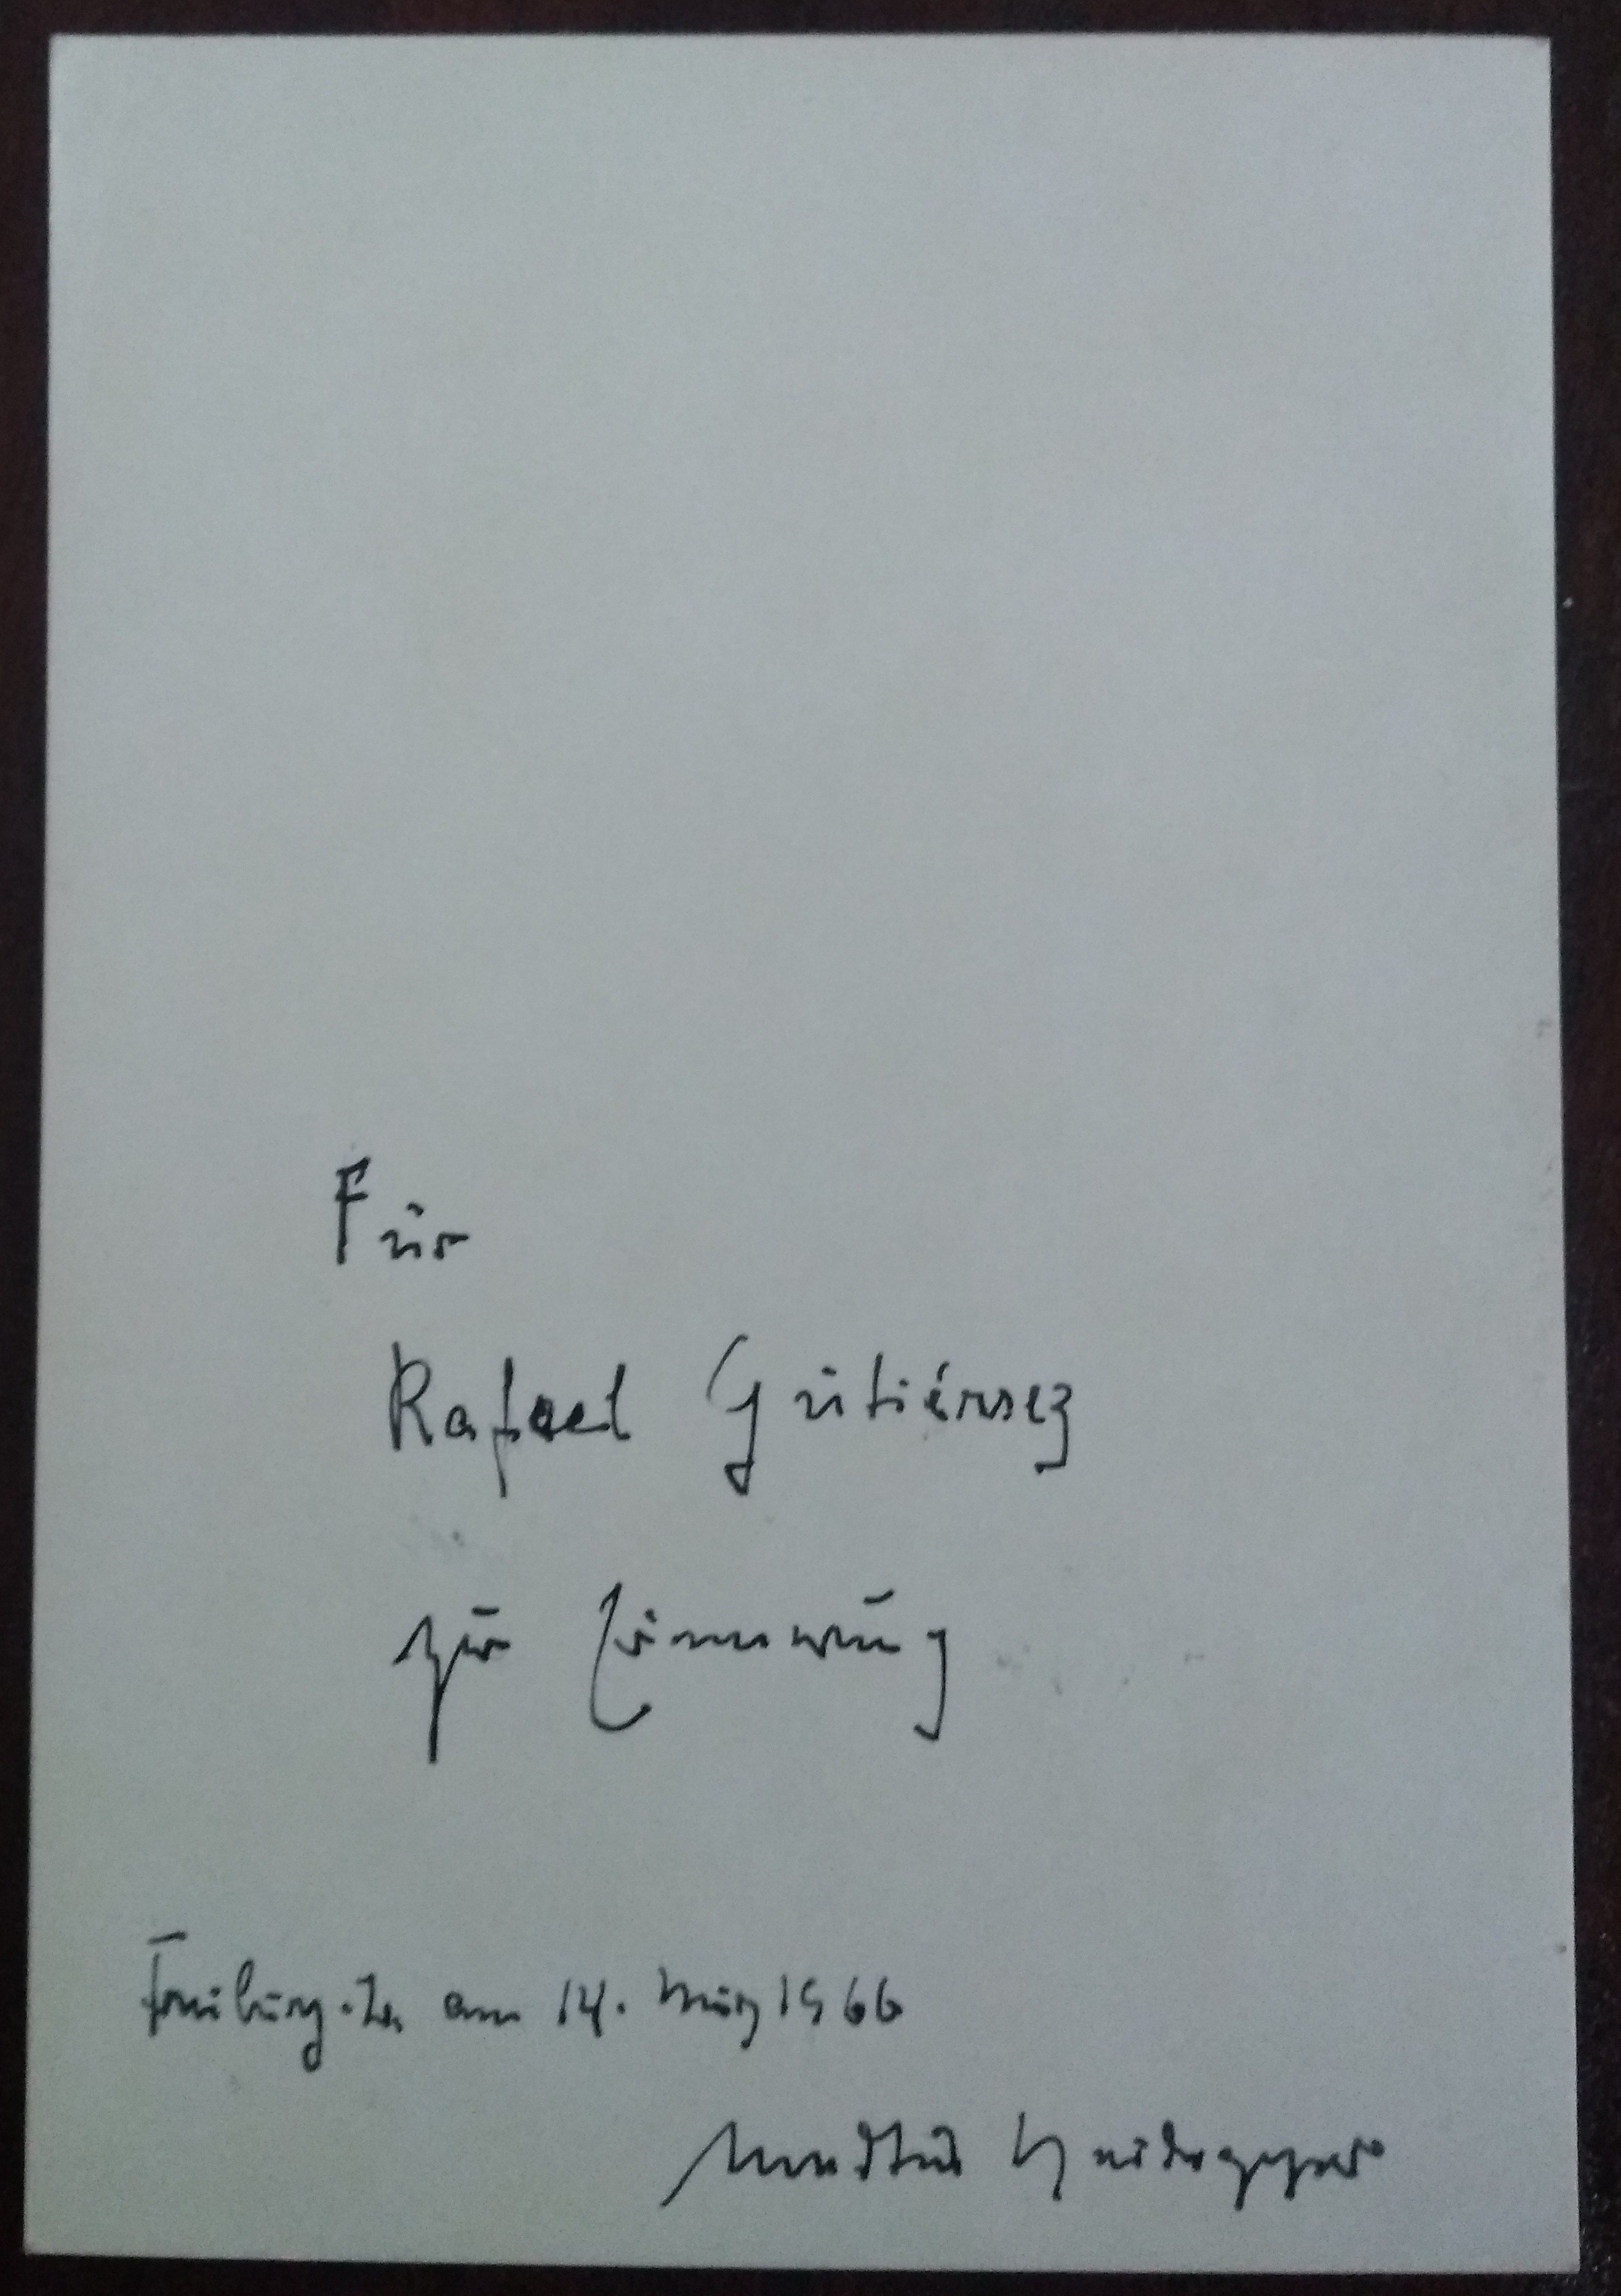 Für
Rafael Gutiérrez
zur Erinnerung
Freiburg. Br. am 14. März 1966
Martin Heidegger